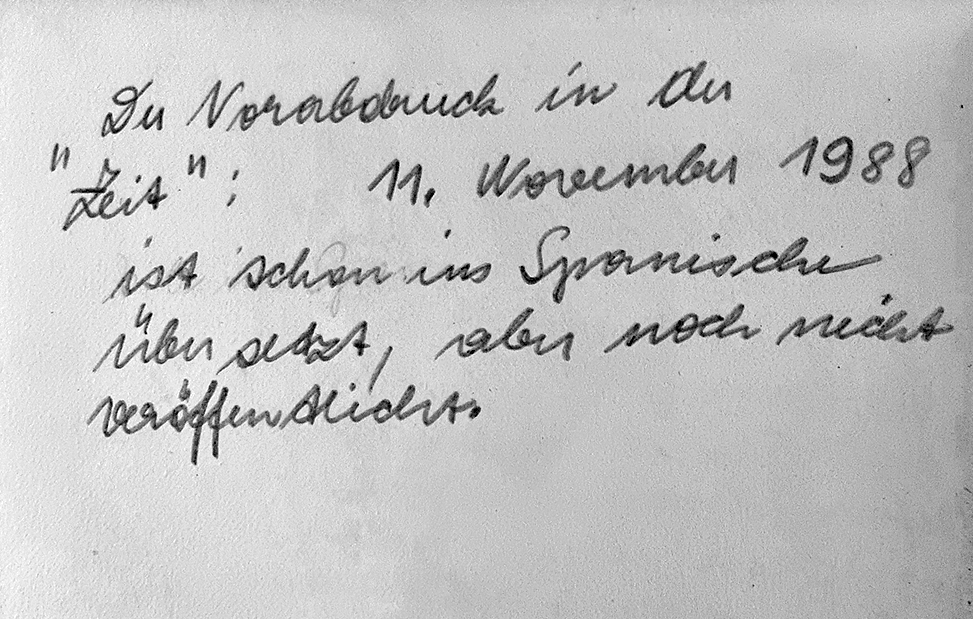 Der Vorabdruck in der
"Zeit": 11. November 1988
ist schon ins Spanische
übersetzt, aber noch nicht
veröffentlicht.